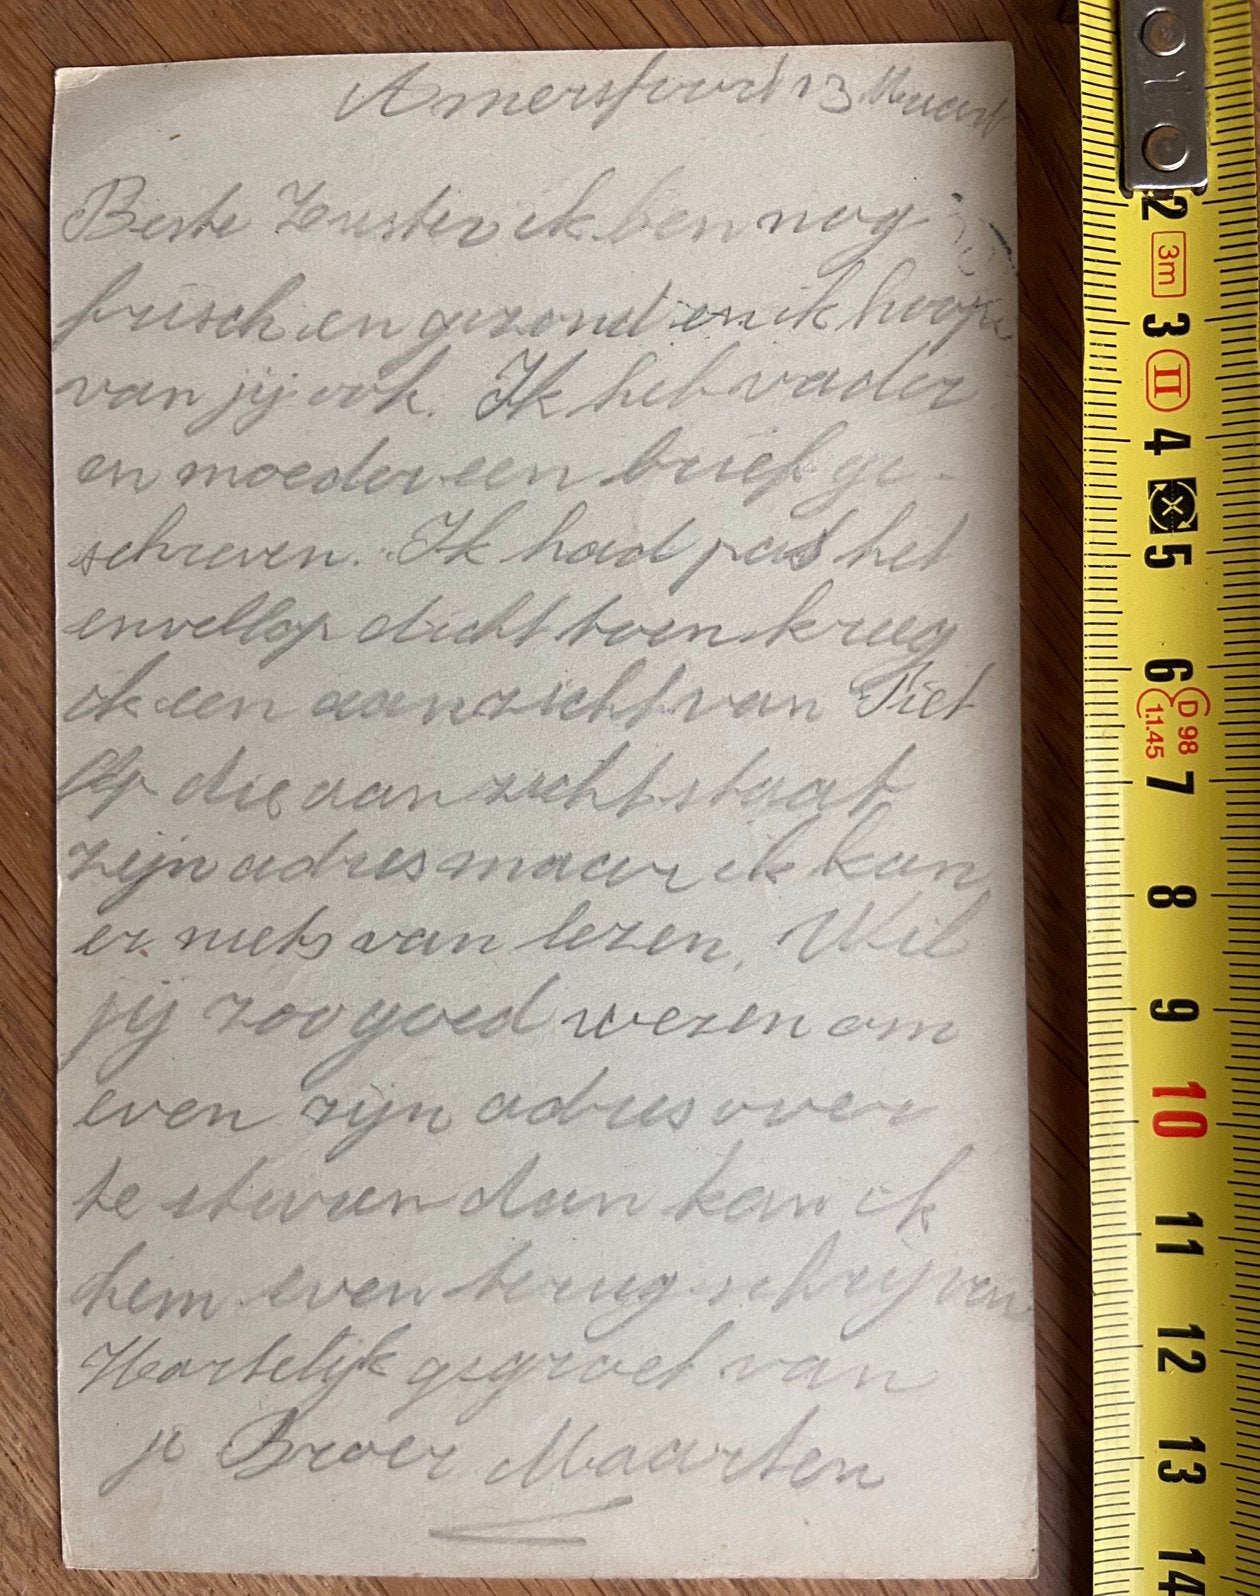 Amersfoort 13 Maart
Beste Zuster ik ben nog
frisch en gezond en ik hoop
van jij ook. Ik heb vader
en moeder een brief ge-
schreven. Ik had pas het
envellop dicht toen kreeg
ik een aanzicht van Piet
Op die aanzicht staat
zijn adres maar ik kan
er niets van lezen. Wil
jij zoo goed wezen om
even zijn adres over
te sturen dan kan ik
hem even terug schrijven
Hartelijk gegroet van
je Broer Maarten
2
3m
3
II
4
5
6
D 98
1.1.45
7
8
9
10
11
12
13
14